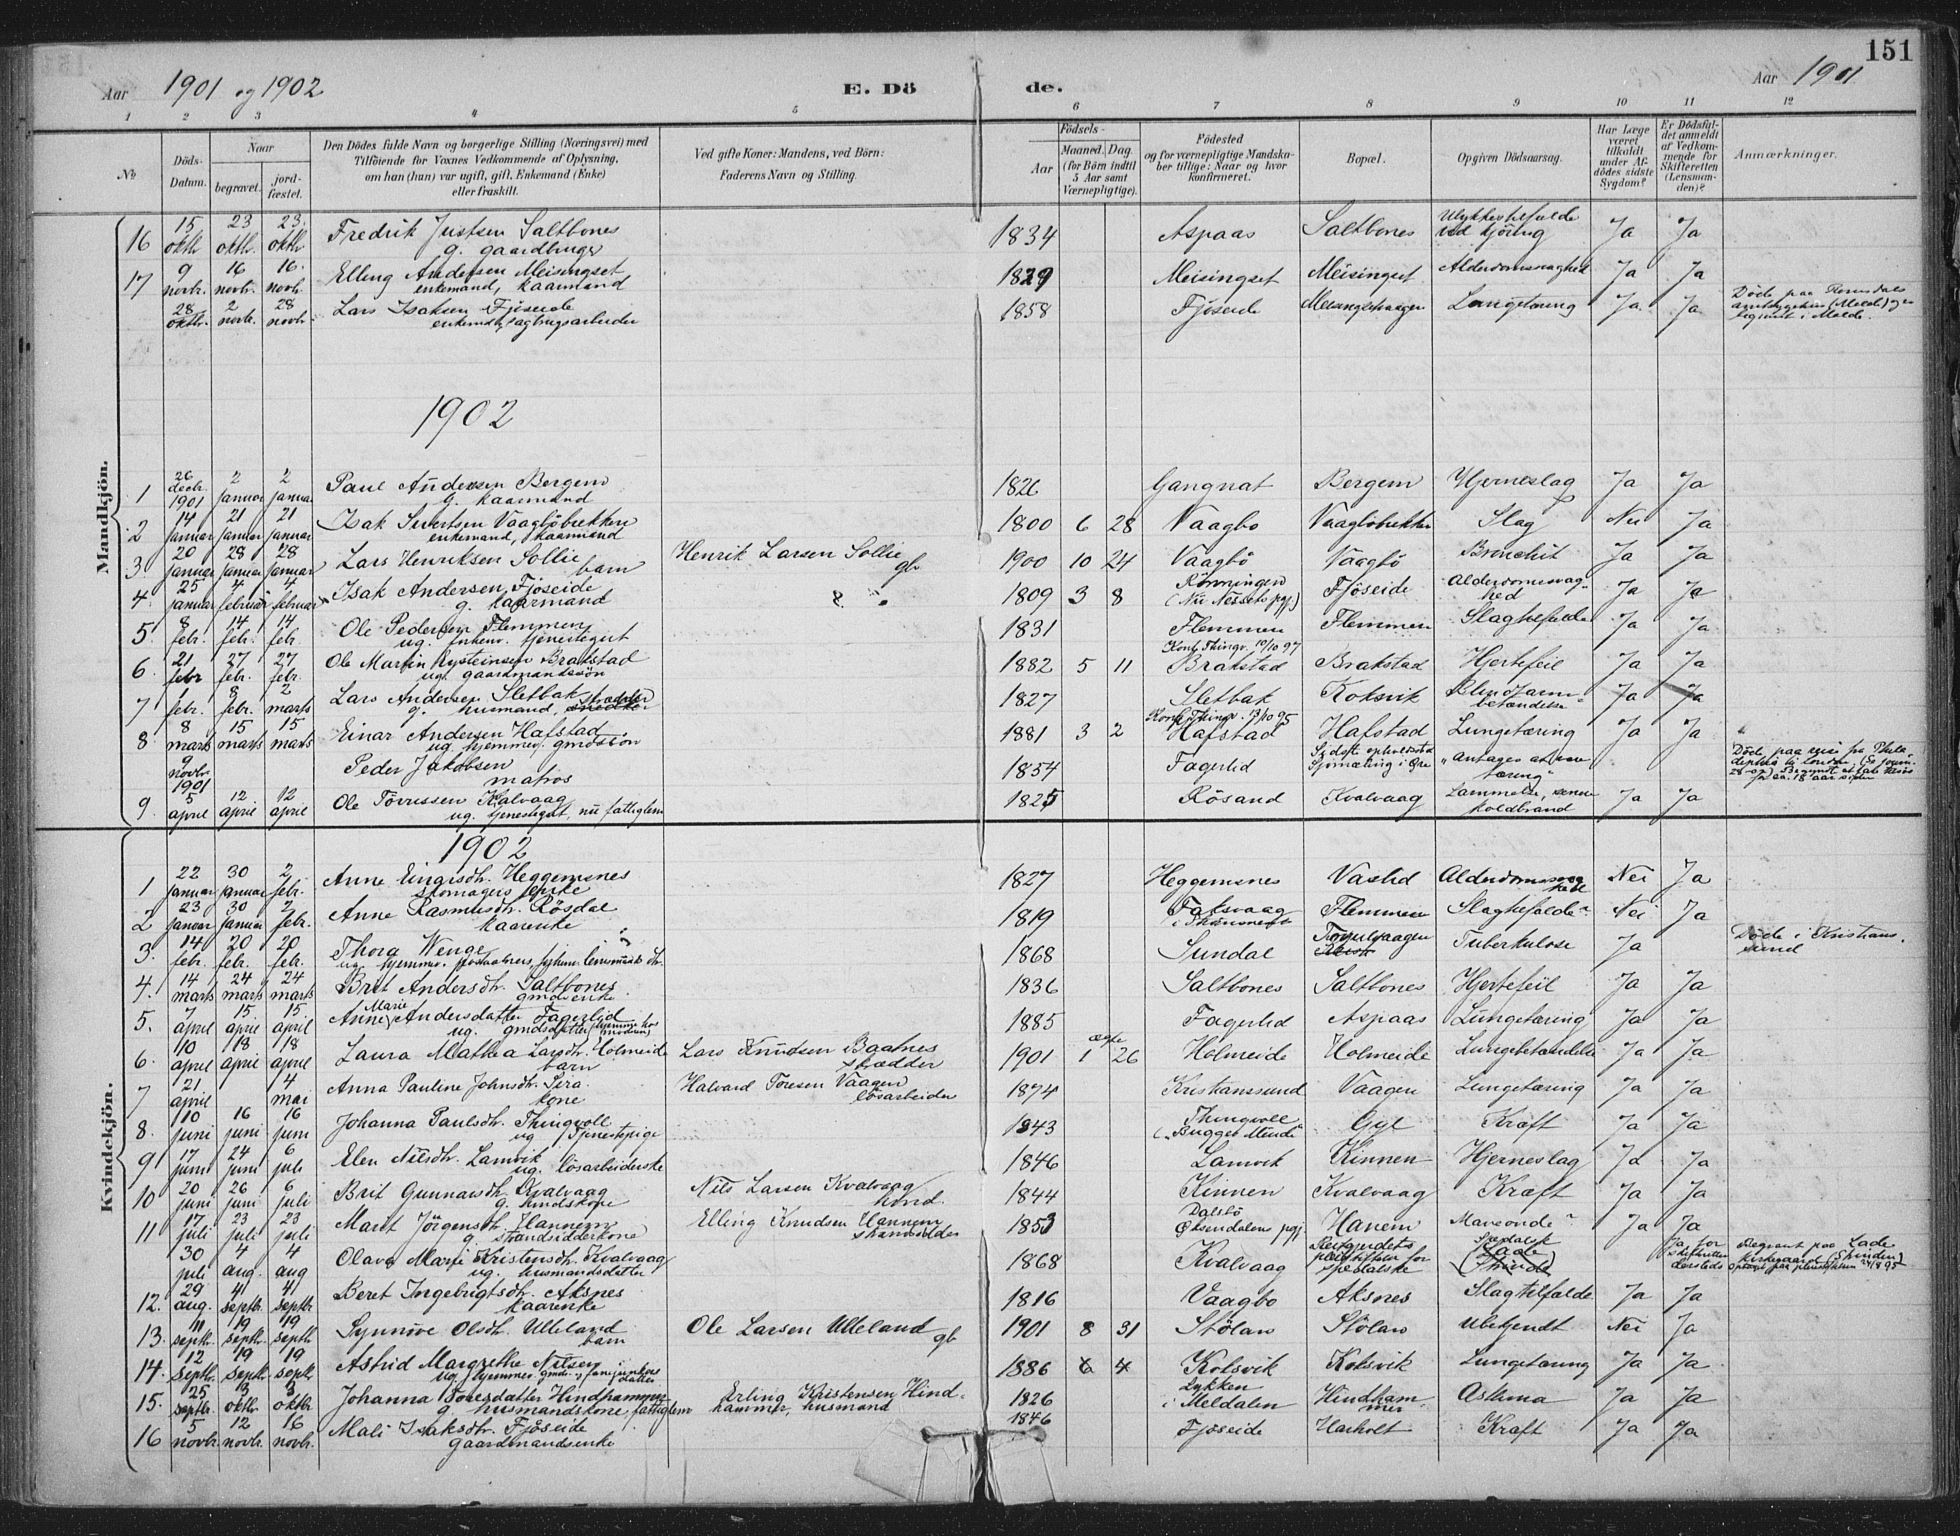 151
Aar 1901 og 1902 E. Dö de. Aar 1901
1 2 3 4 5 6 7 8 9 10 11 12
No Döds-Datum. Naar begravet. jordfæstet. Den Dödes fulde Navn og borgerlige Stilling (Næringsvei) med Tilföiende for Voxnes Vedkommende af Oplysning, om han (hun) var ugift, gift, Enkemand (Enke) eller fraskilt. Ved gifte Koner: Mandens, ved Börn: Faderens Navn og Stilling. Födsels- Aar Maaned. Dag. (for Börn indtil 5 Aar samt Værnepligtige). Födested og for værnepligtige Mandskaber tillige: Naar og hvor konfirmeret. Bopæl. Opgiven Dödsaarsag. Har Læge været tilkaldt under Afdödes sidste Sygdom? Er Dödsfaldet anmeldt af Vedkommende for Skifteretten (Lensmanden)? Anmærkninger.
Mandkjön.
16 15 oktbr 23 oktbr. 23 oktbr Fredrik Justsen Saltbones g. gaardbruger 1834 Aspaas Saltbones Ulykkestilfælde ved kjöring Ja Ja
17 9 novbr. 16 novbr. 16. novbr. Elling Andersen Meisingset enkemand, kaarmand 1829 Meisingset Meisingset Alderdomssvaghed Ja Ja
28 oktbr. 2 novbr. 28 novbr. Lars Isaksen Fjöseide enkemd, dagbrugsarbeider 1858 Fjöseide Lungetæring Ja Ja Döde paa Romsdals amtssygehus (Molde) i Molde.
1902
1 26 decbr. 1901 2 januar 2 januar Paul Andersen Bergem g. kaarmand 1826 Gangnat Bergem Hjerneslag Ja Ja
2 14 januar 21 januar 21 januar Isak Sivertsen Vaagböbrekken enkemand, kaarmand 1800 6 28 Vaagbö Vaagböbrekken Slag Nei Ja
3. 20 januar 28 januar 28 januar Lars Henriksen Sollie barn Henrik Larsen Sollie gb 1900 10 24 Vaagbö Vaagbö Bronchit Ja Ja
4. 25 januar 4 februar 4 februar Isak Andersen Fjöseide g. kaarmand 1809 3 8 Rönningen (Nu Nessets pgj.) Fjöseide Alderdomssvaghed Ja Ja
5. 8 febr. 14 febr. 14 febr. Ole Pedersen Flemmen ug. tjenestegut 1831 Flemmen Flemmen Slagtilfælde Ja Ja
6. 21 febr 27 febr. 27 febr. Ole Martin Eysteinsen Brakstad ug. gaardmandssön 1882 5 11 Konf. Thingv. 10/10 97 Brakstad Brakstad Hjertefeil Ja Ja
7 febr. 8 febr. 2 marts Lars Andersen Sletbak g. husmand, skrædder 1827 Sletbak Koksvik Blindtarmbetændelse Ja Ja
8. 8 marts 15 marts 15 marts Einar Andersen Hafstad ug. hjemmev. gmdssön 1881 3 2 Konf. Thingv. 13/10 95 Hafstad Hafstad Lungetæring Ja Ja
9 novbr. 1901 Peder Jakobsen matros 1854 Fagerlid "Antages at være tæring"
9. 5 april 12 april 12 april Ole Törrissen Kvalvaag ug. tjenestegut, nu fattiglem 1825 Rösand Kvalvaag Lammelse, senere koldbrand Ja Ja
Kvindekjön.
1902
1 22 januar 30 januar 2. febr. Anne Einarsdtr. Heggemsnes skomagers enke 1827 Heggemsnes Vaslid Alderdomssvaghed Nei Ja
2 23 januar 30 januar 2 febr. Anne Rasmusdtr. Rösdal kaarenke 1819 Flemmen Slagtilfælde Nei Ja
3. 14 febr. 20 febr. 20 febr. Thora Wenge 1868 Sundal Torvulvaagen Tuberkulose Ja Döde i Kristianssund
4. 14 marts 24 marts 24 marts Brit Andersdtr. Saltbones gmdsenke 1836 Saltbones Saltbones Hjertefeil Ja Ja
5. 7 april 15 april 15 april Anne Marie Andersdatter Fagerlid ug. gmdsdatter (hjemme hos moderen) 1885 Fagerlid Aspaas Lungetæring Ja Ja
6. 10 april 18 april 18 april Laura Mathea Larsdtr. Holmeide barn Lars Knudsen Baatnes skrædder 1901 ægte 1 26 Holmeide Holmeide Lungebetændelse Ja Ja
7 21 april 4 mai Anna Pauline Johnsdtr. Lira kone Halvard Toresen Vaagen lösarbeider 1874 Kristianssund Vaagen Lungetæring Ja Ja
8. 10 juni 16 juni 16 juni Johanna Paulsdtr. Thingvoll ug Tjenestepige 1843 Thingvoll Gyl Kræft Ja Ja
9 17 juni 24 juni 6 juli Elen Nilsdtr. Lamvik ug. lösarbeiderske 1846 Lamvik Kinnen Hjerneslag Ja Ja
10 20 juni 26 juni 6 juli Brit Gunnarsdtr. Kvalvaag g. husmdskone Nils Larsen Kvalvaag husmd. 1844 Kinnen Kvalvaag Kræft Ja Ja
11 17 juli 23 juli 23 juli Marit Jörgensdtr. Hannem g. strandsidderkone Elling Knudsen Hannem strandsidder 1853 Dalsbö Öksendalens pgj. Hanem Maveonde Ja Ja
30 juli 4 aug. 4 aug Olava Marie Kristensdtr. Kvalvaag ug. husmandsdatter 1868 Kvalvaag Reitgjerdets pleiestiftelse for spedalske Spedalsk Ja, for skifteretten dersteds Begravet paa Lade kirkegaard
12. 29 aug. 4 septbr. 4 septbr Beret Ingebrigtsdtr. Aksnes kaarenke 1816 Vaagbö Aksnes Slagtilfælde Ja Ja
13. 11 septbr. 19 septbr. 19 septbr Synnöve Olsdtr. Ulleland barn Ole Larsen Ulleland gb 1901 8 31 Stölan Stölan Ubekjendt Nei Ja
14. 12 septbr. 19 septbr 19 septbr Astrid Margrethe Nilsen 1886 6 4 Kolsvik Kolsvik Lungetæring Ja Ja
15. 25 septbr. 3 oktbr 5 oktbr Johanna Toresdatter Hindhammer g. husmandskone, fattiglem Erling Kristensen Hindhammer, husmand 1826 Lykken i Meldalen Hindhammer Asthma Ja Ja
16 5 novbr. 12 novbr. 16 novbr. Mali Isaksdtr. Fjöseide gaardmandsenke 1846 Fjöseide Harholt Kræft Ja Ja